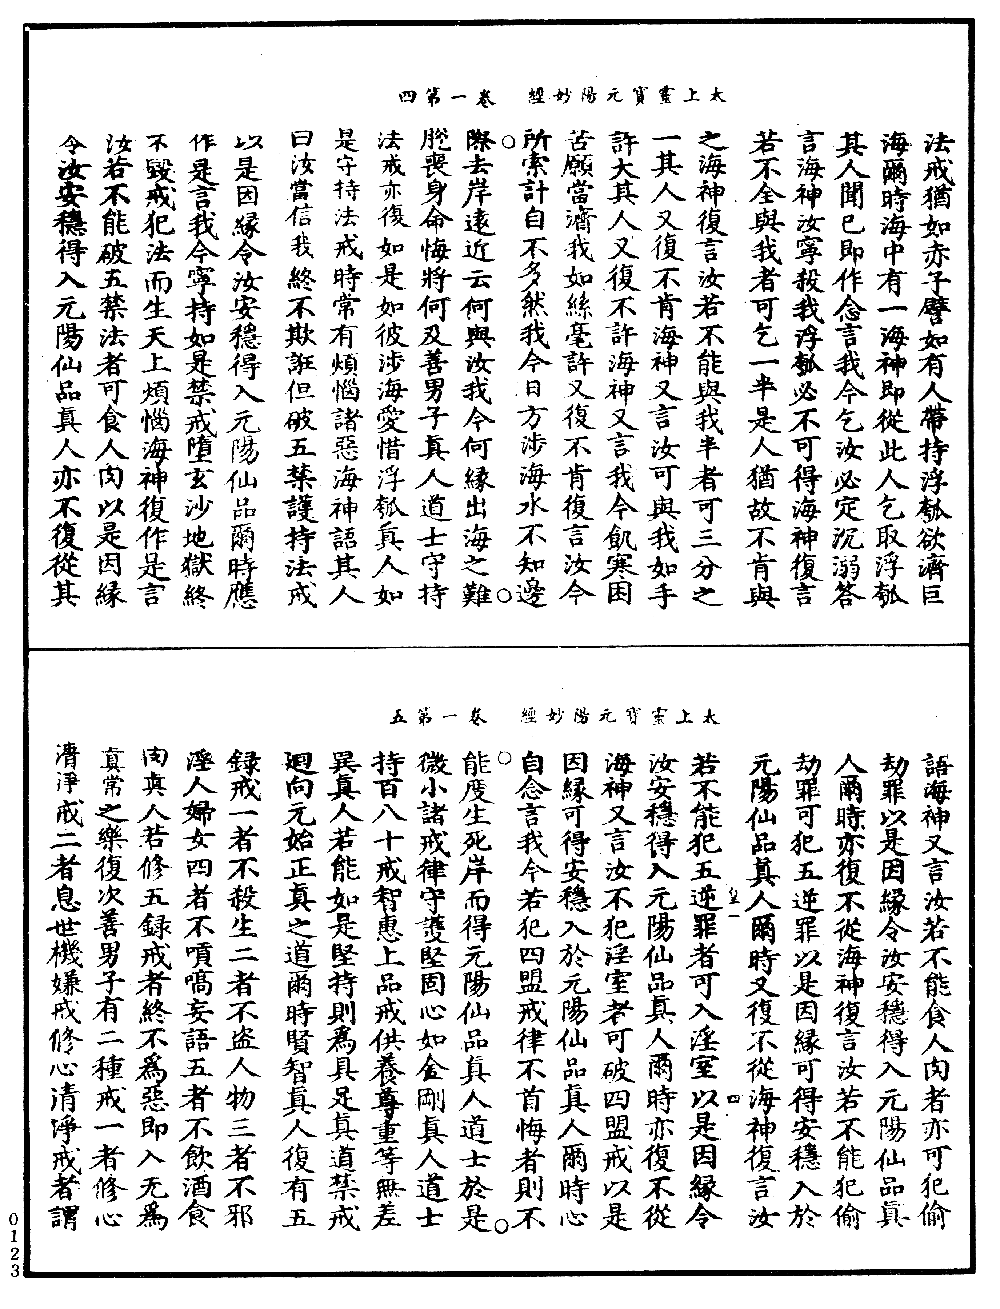 太上靈寶元陽妙經　卷一第四
法戒猶如赤子譬如有人帶持浮瓠欲濟巨
海爾時海中有一海神即從此人乞取浮瓠
其人聞已即作念言我今乞汝必定沉溺答
言海神汝寧殺我浮瓠必不可得海神復言
若不全與我者可乞一半是人猶故不肯與
之海神復言汝若不能與我半者可三分之
一其人又復不肯海神又言汝可與我如手
許大其人又復不許海神又言我今飢寒困
苦願當濟我如絲毫許又復不肯復言汝今
所索計自不多然我今日方涉海水不知邊
際去岸遠近云何與汝我今何緣出海之難
脫喪身命悔將何及善男子真人道士守持
法戒亦復如是如彼涉海愛惜浮瓠真人如
是守持法戒時常有煩惱諸惡海神語其人
曰汝當信我終不欺誑但破五禁護持法戒
以是因緣令汝安穩得入元陽仙品爾時應
作是言我今寧持如是禁戒墮玄沙地獄終
不毀戒犯法而生天上煩惱海神復作是言
汝若不能破五禁法者可食人肉以是因緣
令汝安穩得入元陽仙品真人亦不復從其
太上靈寶元陽妙經　卷一第五
語海神又言汝若不能食人肉者亦可犯偷
劫罪以是因緣令汝安穩得入元陽仙品真
人爾時亦復不從海神復言汝若不能犯偷
劫罪可犯五逆罪以是因緣可得安穩入於
元陽仙品真人爾時又復不從海神復言汝
若不能犯五逆罪者可入淫室以是因緣令
汝安穩得入元陽仙品真人爾時亦復不從
海神又言汝不犯淫室者可破四盟戒以是
因緣可得安穩入於元陽仙品真人爾時心
自念言我今若犯四盟戒律不首悔者則不
能度生死岸而得元陽仙品真人道士於是
微小諸戒律守護堅固心如金剛真人道士
持百八十戒智惠上品戒供養尊重等無差
異真人若能如是堅持則為具足真道禁戒
迴向元始正真之道爾時賢智真人復有五
錄戒一者不殺生二者不盜人物三者不邪
淫人婦女四者不嗔喎妄語五者不飲酒食
肉真人若修五錄戒者終不為惡即入无為
真常之樂復次善男子有二種戒一者修心
清淨戒二者息世機嫌戒修心清淨戒者謂
0123